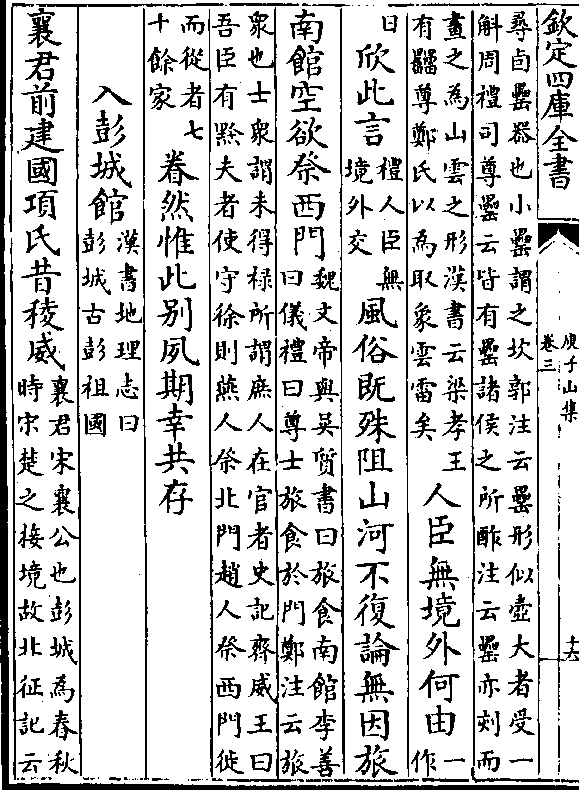 欽定四庫全書
庾子山集
卷三
十六
尋卣罍器也小罍謂之坎郭注云罍形似壺大者受一
斛周禮司尊罍云皆有罍諸侯之所酢注云罍亦刻而
畫之為山雲之形漢書云梁孝王
有罍尊鄭氏以為取象雲雷矣
人臣無境外何由
一作
日
欣此言
禮人臣無
境外交
風俗既殊阻山河不復論無因旅
南館空欲祭西門
魏文帝與吳質書曰旅食南館李善
曰儀禮曰尊士旅食於門鄭注云旅
衆也士衆謂未得祿所謂庶人在官者史記齊威王曰
吾臣有黔夫者使守徐則燕人祭北門趙人祭西門徙
而從者七
十餘家
眷然惟此别夙期幸共存
入彭城館
漢書地理志曰
彭城古彭祖國
襄君前建國項氏昔稜威
襄君宋襄公也彭城為春秋
時宋楚之接境故北征記云